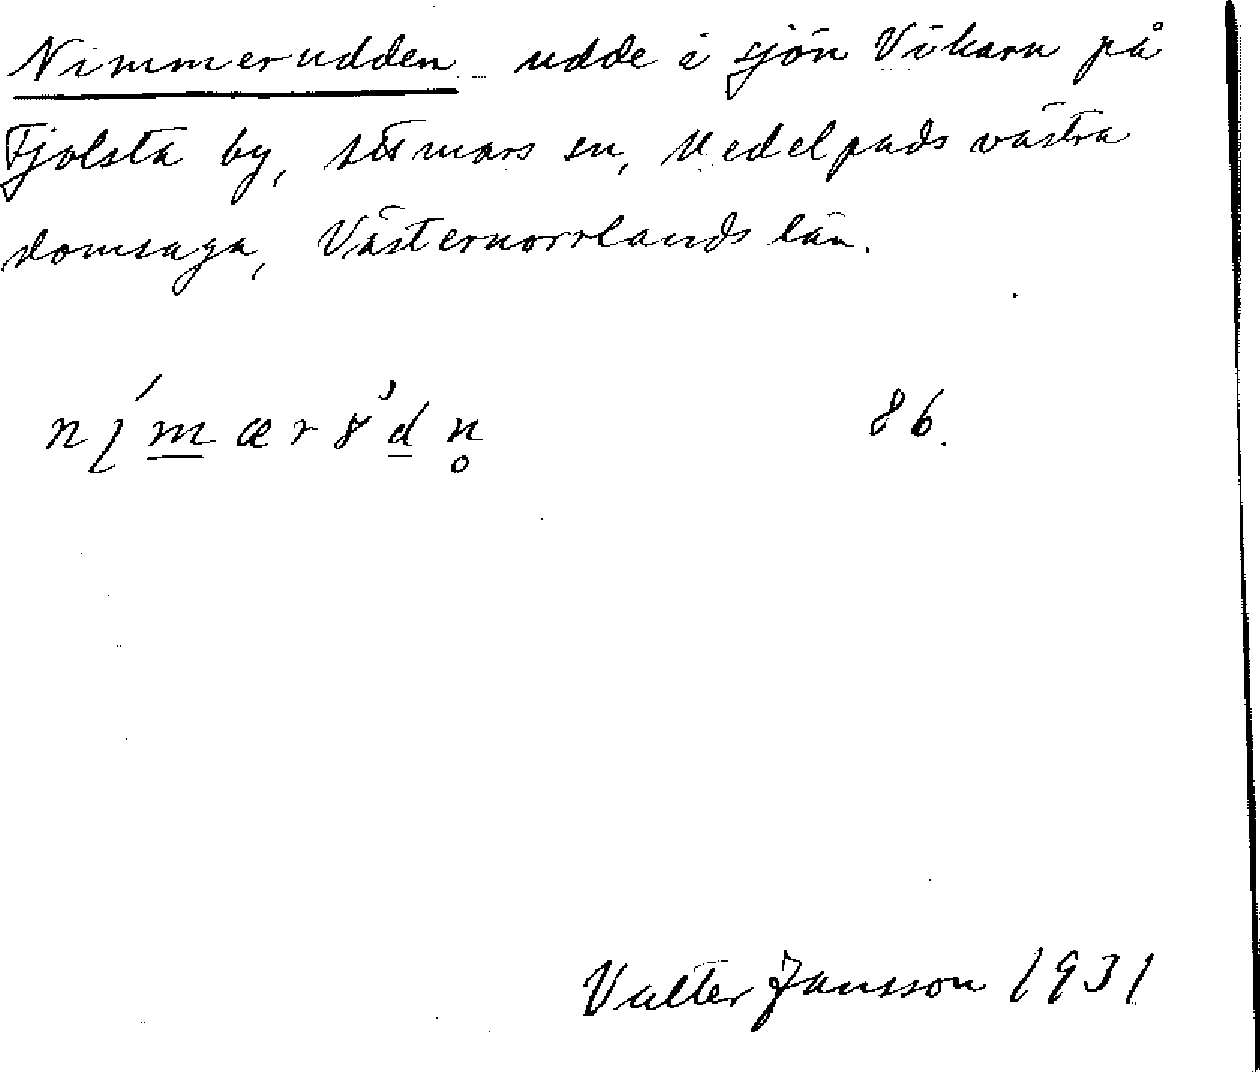 Nimmerudden udde i sjön Vikarn på
Fjolsta by, Attmars sn, Medelpads västra
domsaga, Västernorrlands län.
86.
Valter Jansson 1931